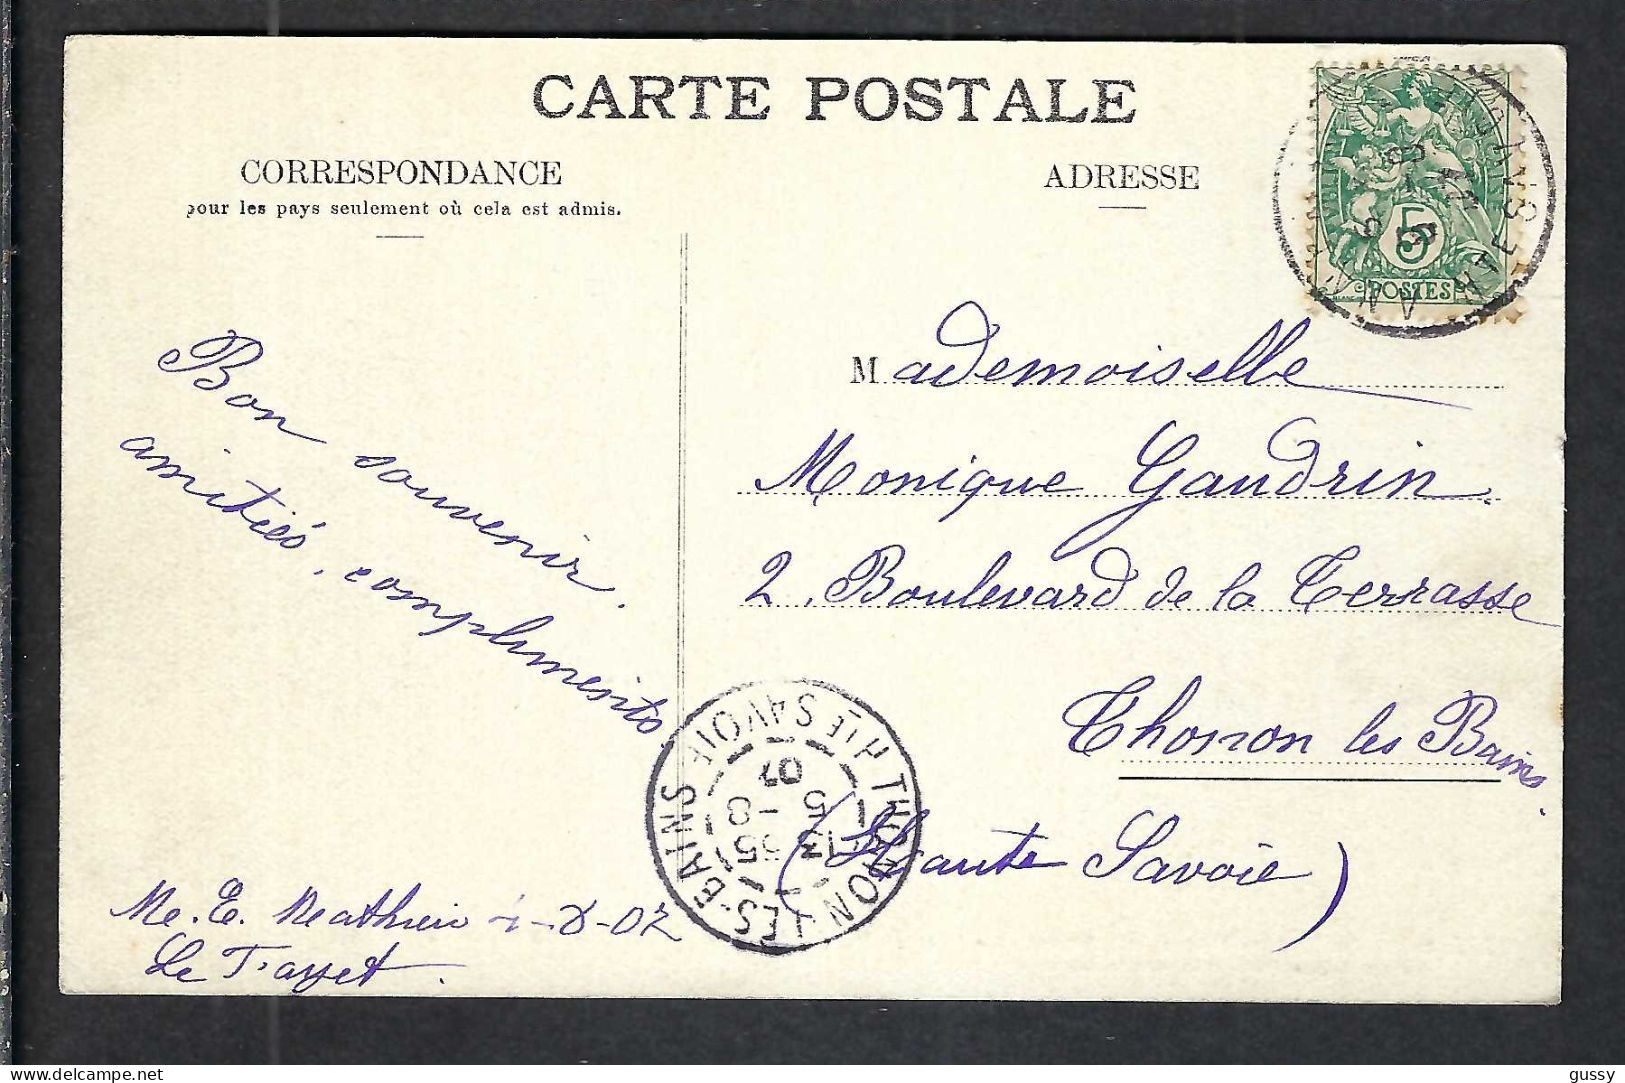 CARTE POSTALE
CORRESPONDANCE
pour les pays seulement où cela est admis.
ADRESSE
5
POSTES
HTE SAVOIE
Mademoiselle
Monique Gaudrin
2, Boulevard de la Terrasse
Thonon les Bains
(Haute Savoie)
Bon souvenir.
amitiés, compliments
THONON-LES-BAINS HTE SAVOIE
13 35
5 -8
07
Me. E. Mathieu
Delcampe.net
gussy